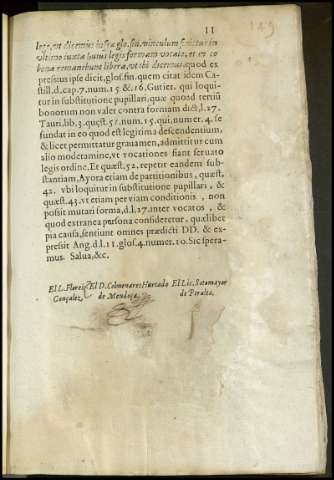 11
lege, ut dicemus infra glo. fin. vinculum scribitur in
ultimo iuxta huius legis formam vocato, et ex co
bona remanebunt libera, ut ibi dicemus. quod ex
pressius ipse dicit, glos. fin. quem citat idem Ca-
still. d. cap. 7. num. 15. & 16. Gutier. qui loqui-
tur in substitutione pupillari, quæ quod tertiũ
bonorum non valer contra formam dict. l. 27.
Tauri. lib. 3. quęst. 51. num. 15. qui, num et. 4. se
fundat in eo quod est legitima descendentium,
& licet permittatur grauamen, admittitur cum
alio moderamine, vt vocationes fiant seruato
legis ordine. Et quæst. 52. repetit eandem sub-
stantiam, Ayora etiam de partitionibus, quæst,
42. vbi loquitur in substitutione pupillari, &
quæst. 43. vt etiam per viam conditionis, non
possit mutari forma, d. l. 27. inter vocatos, &
quod extranea persona consideretur, quælibet
pia causa, sentiunt omnes prædicti DD. & ex-
pressit Ang. d. l. 11. glos. 4. numer. 10. Sic spera-
mus. Salua, &c.
El L. Florez El D. Colmenares Hurtado El Lic. Sotomayor
Gonçalez. de Mendoça. de Peralta.